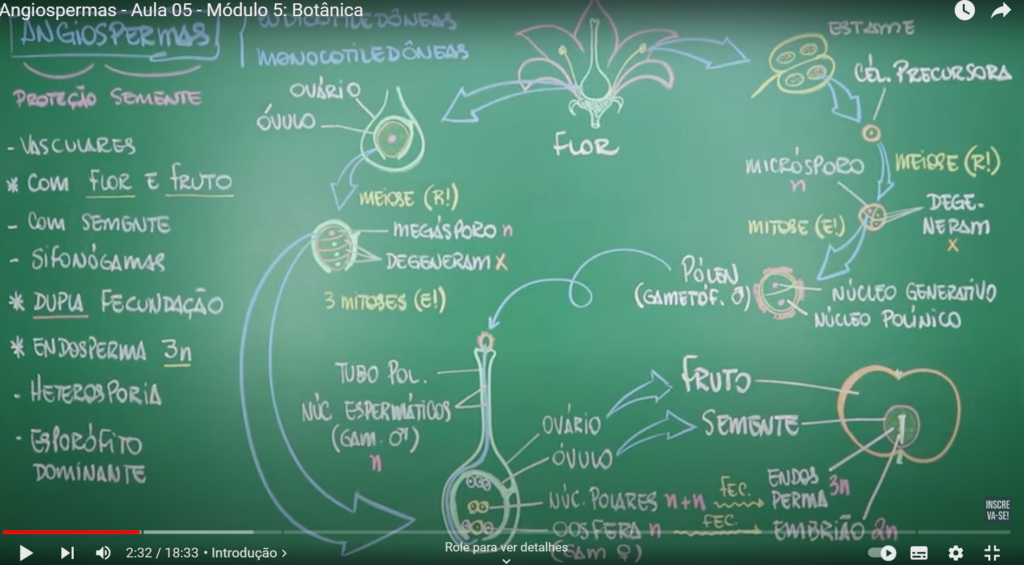 Angiospermas - Aula 05 - Módulo 5: Botânica
ANGIOSPERMAS
EUDICOTILEDÔNEAS
MONOCOTILEDÔNEAS
PROTEÇÃO SEMENTE
- VASCULARES
* COM FLOR E FRUTO
- COM SEMENTE
- SIFONÓGAMAS
* DUPLA FECUNDAÇÃO
* ENDOSPERMA 3n
- HETEROSPORIA
- ESPORÓFITO
DOMINANTE
OVÁRIO
ÓVULO
FLOR
ESTAME
CÉL. PRECURSORA
MEIOSE (R!)
MEGÁSPORO n
DEGENERAM X
3 MITOSES (E!)
MICRÓSPORO
n
MEIOSE (R!)
DEGE-
NERAM
X
MITOSE (E!)
PÓLEN
(GAMETÓF. ♂)
NÚCLEO GENERATIVO
NÚCLEO POLÍNICO
TUBO POL.
NÚC. ESPERMÁTICOS
(GAM. ♂)
n
OVÁRIO
ÓVULO
FRUTO
SEMENTE
NÚC. POLARES n+n
FEC.
ENDOS
PERMA 3n
OOSFERA n
FEC.
EMBRIÃO 2n
(GAM ♀)
INSCRE
VA-SE!
2:32 / 18:33 • Introdução >
Role para ver detalhes